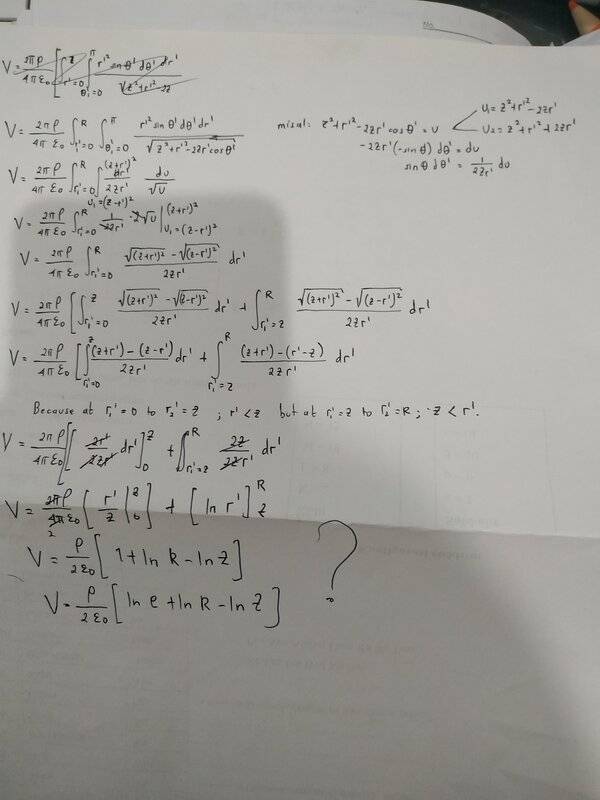 No.
V = 2πρ/4πε₀ [ ∫_{r'=0}^{z} ∫_{θ'=0}^{π} r'² sinθ' dθ' dr' / √(z²+r'² 2z
V = 2πρ/4πε₀ ∫_{r₁'=0}^{R} ∫_{θ₁'=0}^{π} r'² sinθ' dθ' dr' / √(z²+r'²-2zr'cosθ')
misal: z²+r'²-2zr'cosθ' = u
u₁ = z²+r'²-2zr'
u₂ = z²+r'²+2zr'
-2zr'(-sinθ) dθ' = du
sinθ dθ' = 1/2zr' du
V = 2πρ/4πε₀ ∫_{r₁'=0}^{R} ∫_{u₁=(z-r')²}^{(z+r')²} dr'/2zr' du/√u
V = 2πρ/4πε₀ ∫_{r₁'=0}^{R} 1/2zr' · 2√u |_{u₁=(z-r')²}^{(z+r')²}
V = 2πρ/4πε₀ ∫_{r₁'=0}^{R} √(z+r')² - √(z-r')² / 2zr' dr'
V = 2πρ/4πε₀ [ ∫_{r₁'=0}^{z} √(z+r')² - √(z-r')² / 2zr' dr' + ∫_{r₁'=z}^{R} √(z+r')² - √(z-r')² / 2zr' dr'
V = 2πρ/4πε₀ [ ∫_{r₁'=0}^{z} (z+r') - (z-r') / 2zr' dr' + ∫_{r₁'=z}^{R} (z+r') - (r'-z) / 2zr' dr'
Because at r₁' = 0 to r₂' = z ; r' < z but at r₁' = z to r₂' = R ; z < r'.
V = 2πρ/4πε₀ [ [ 2r'/2zr' dr' ]_{0}^{z} + ∫_{r₁'=z}^{R} 2z/2zr' dr'
V = 2πρ/4πε₀ 2 [ r'/z |_{0}^{z} ] + [ ln r' ]_{z}^{R}
V = ρ/2ε₀ [ 1 + ln R - ln z ]
V = ρ/2ε₀ [ ln e + ln R - ln z ]
?